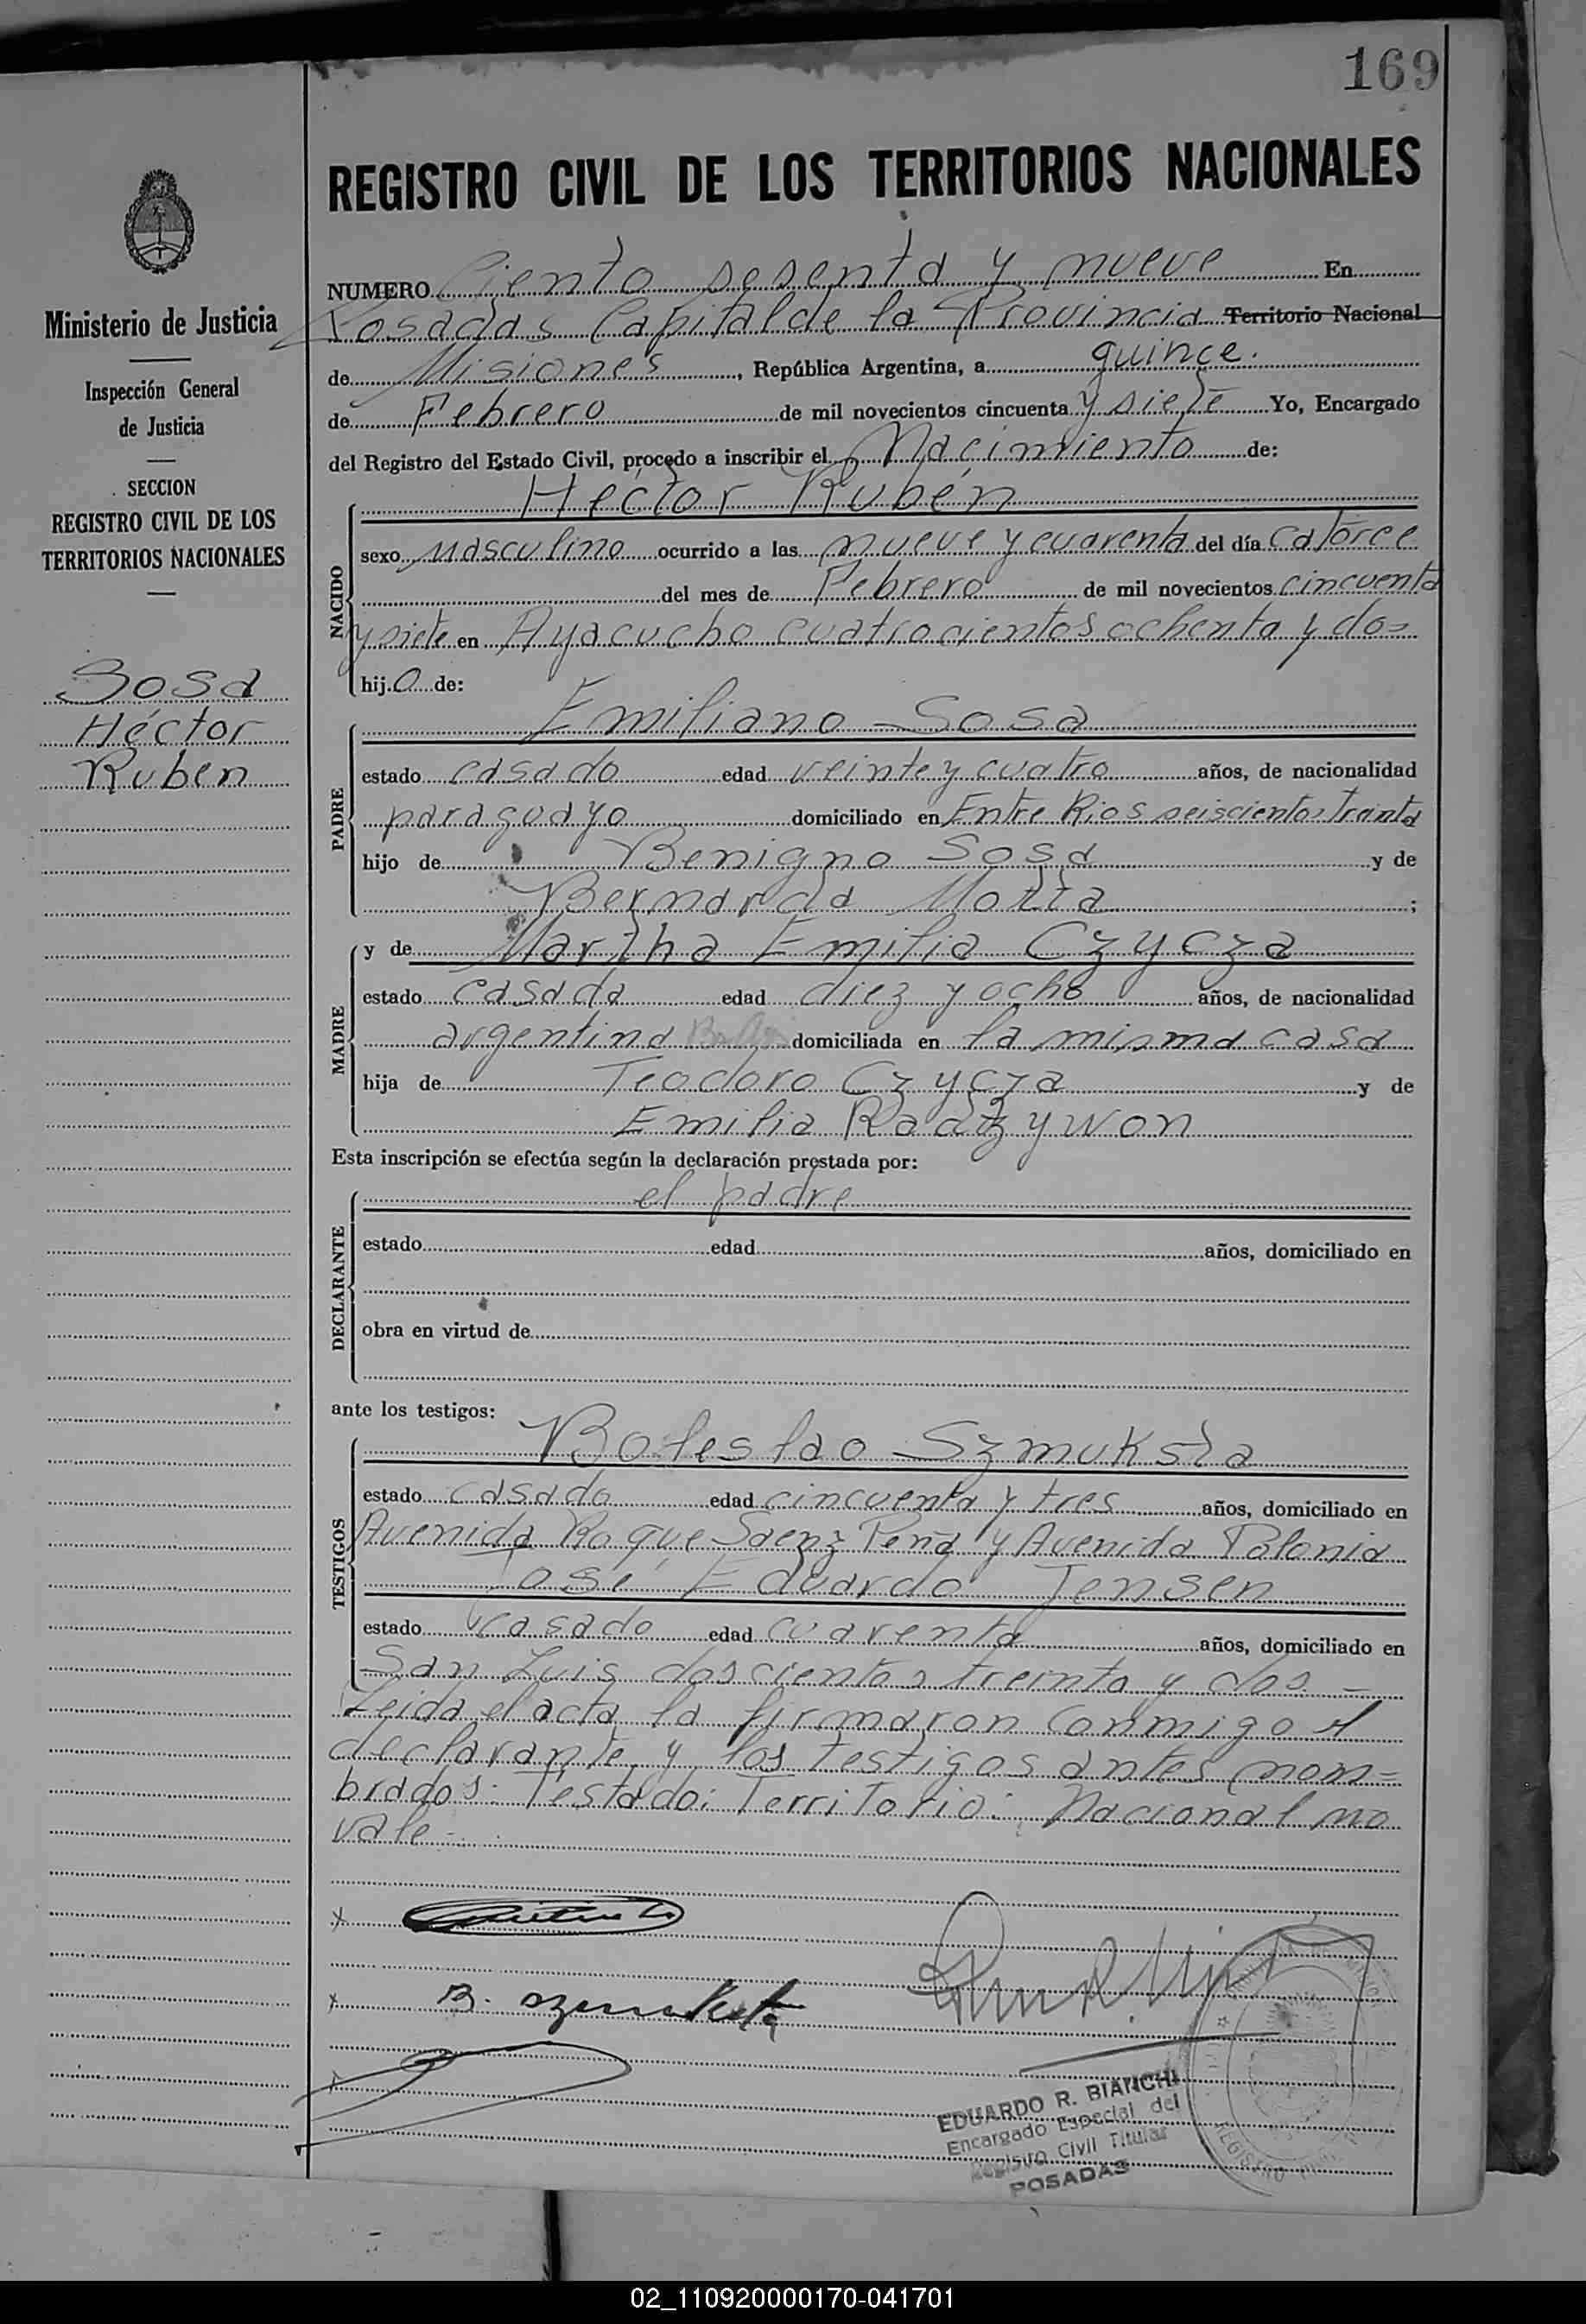 169
REGISTRO CIVIL DE LOS TERRITORIOS NACIONALES
Ministerio de Justicia
Inspección General
de Justicia
SECCION
REGISTRO CIVIL DE LOS
TERRITORIOS NACIONALES
Sosa
Héctor
Ruben
NUMERO Ciento sesenta y nueve En
Posadas Capital de la Provincia Territorio Nacional
de Misiones, República Argentina, a quince.
de Febrero de mil novecientos cincuenta y siete Yo, Encargado
del Registro del Estado Civil, procedo a inscribir el Nacimiento de:
NACIDO
Héctor Rubén
sexo Masculino ocurrido a las nueve y cuarenta del día catorce
del mes de Febrero de mil novecientos cincuenta
y siete en Ayacucho cuatrocientos ochenta y dos
hijo de:
PADRE
Emiliano Sosa
estado casado edad veinte y cuatro años, de nacionalidad
paraguayo domiciliado en Entre Rios seiscientos treinta
hijo de Benigno Sosa y de
Bernarda Motta;
MADRE
y de Martha Emilia Czycza
estado casada edad diez y ocho años, de nacionalidad
argentina domiciliada en la misma casa
hija de Teodoro Czycza y de
Emilia
Esta inscripción se efectúa según la declaración prestada por:
DECLARANTE
el padre
estado edad años, domiciliado en
obra en virtud de
ante los testigos:
TESTIGOS
Boleslao Szmuksta
estado casado edad cincuenta y tres años, domiciliado en
Avenida Roque Saenz Peña y Avenida Polonia
José Eduardo Jensen
estado casado edad cuarenta años, domiciliado en
San Luis doscientos treinta y dos =
Leida el acta la firmaron conmigo el
declarante y los testigos antes nom=
brados: Testado: Territorio: Nacional no
vale-
x
x B. Szmuksta
x
EDUARDO R. BIANCHI
Encargado Especial del
Registro Civil Titular
POSADAS
02_110920000170-041701